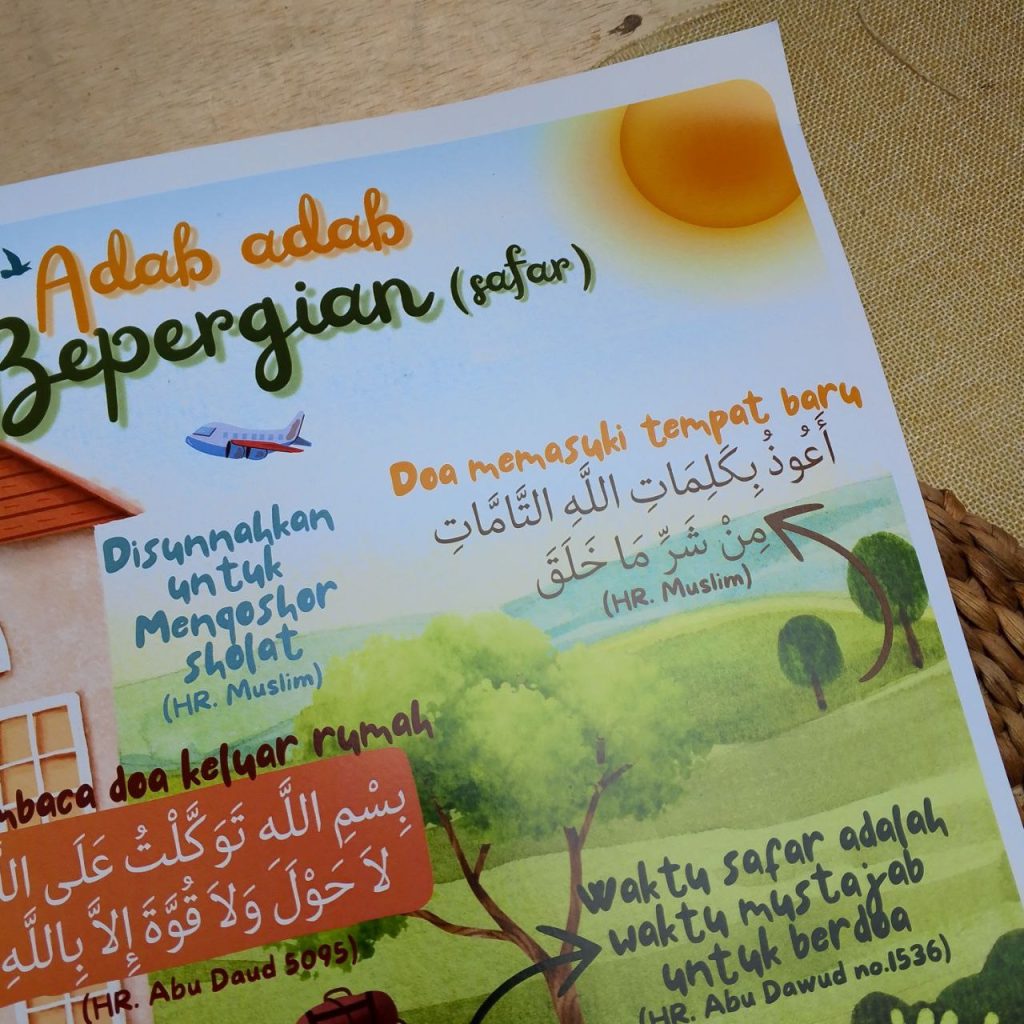 Adab adab
Bepergian (safar)
Doa memasuki tempat baru
أَعُوذُ بِكَلِمَاتِ اللَّهِ التَّامَّاتِ
مِنْ شَرِّ مَا خَلَقَ
(HR. Muslim)
Disunnahkan
untuk
Mengoshor
sholat
(HR. Muslim)
mbaca doa keluar rumah
بِسْمِ اللَّهِ تَوَكَّلْتُ عَلَى
لاَ حَوْلَ وَلاَ قُوَّةَ إِلاَّ بِاللَّهِ
(HR. Abu Daud 5095)
Waktu safar adalah
waktu mustajab
untuk berdoa
(HR. Abu Dawud no.1536)